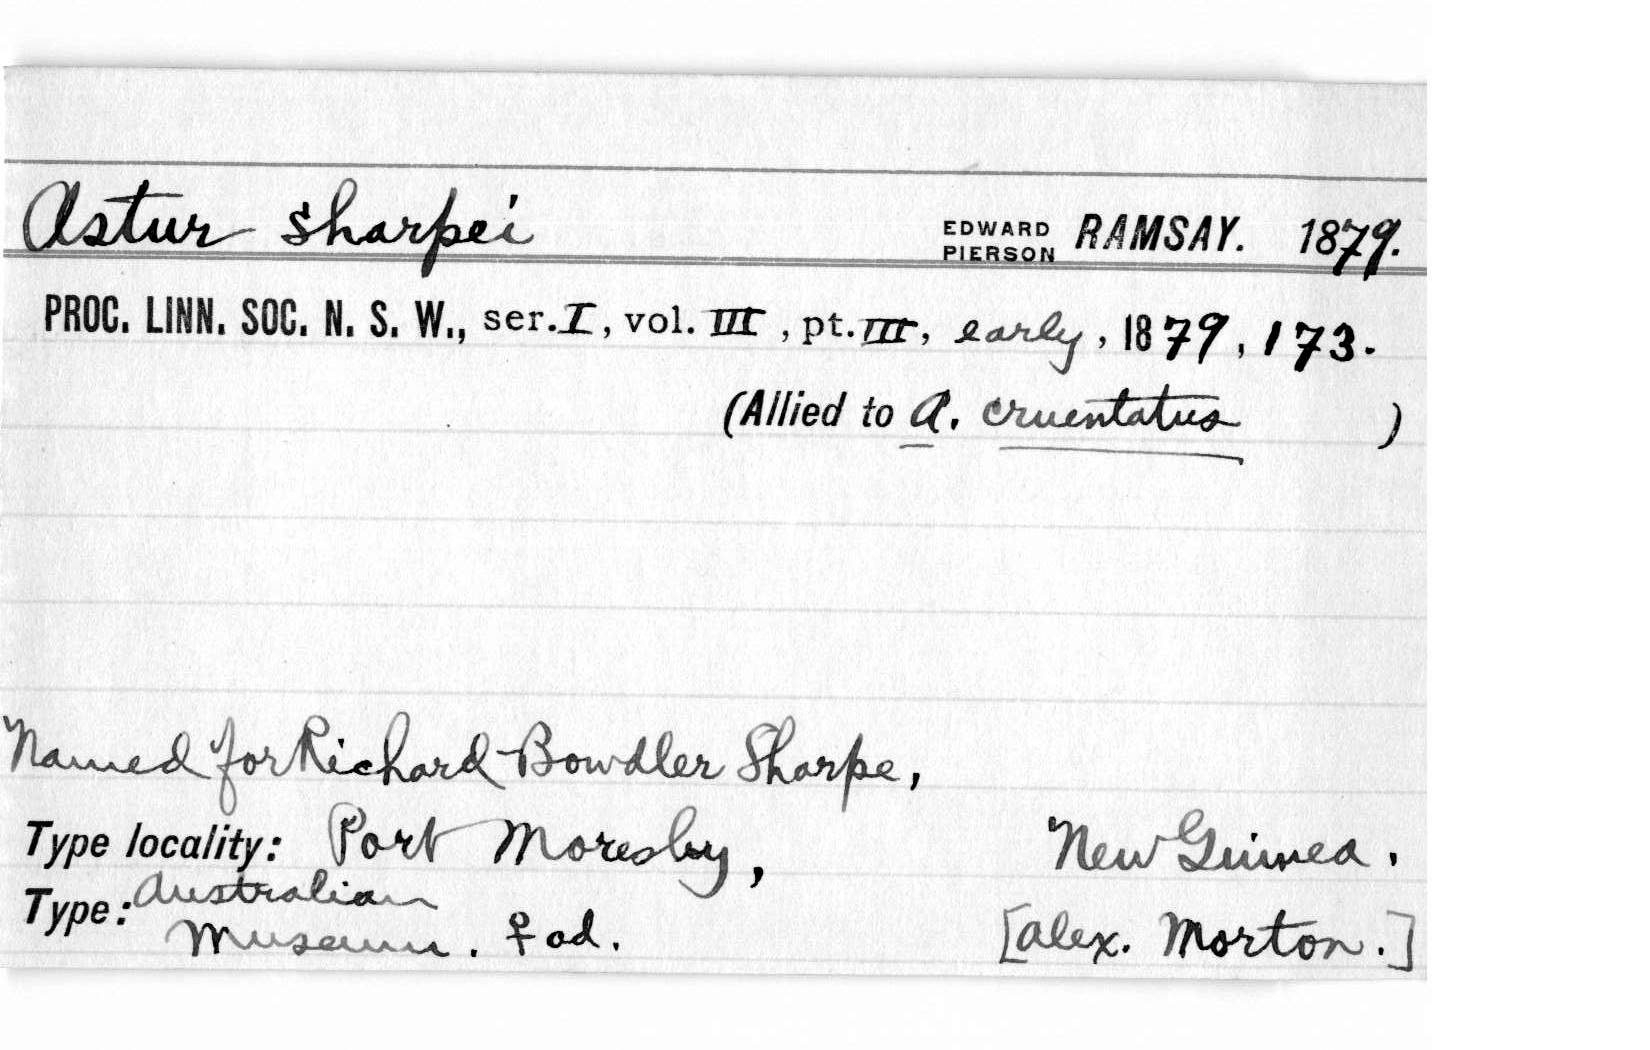 Astur sharpei EDWARD PIERSON RAMSAY. 1879.
PROC. LINN. SOC. N. S. W., ser. I, vol. III, pt. III, early, 1879, 173.
(Allied to A. cruentatus )
Named for Richard Bowdler Sharpe,
Type locality: Port Moresby, New Guinea.
Type: Australian
Museum. ♀ ad. [Alex. Morton.]